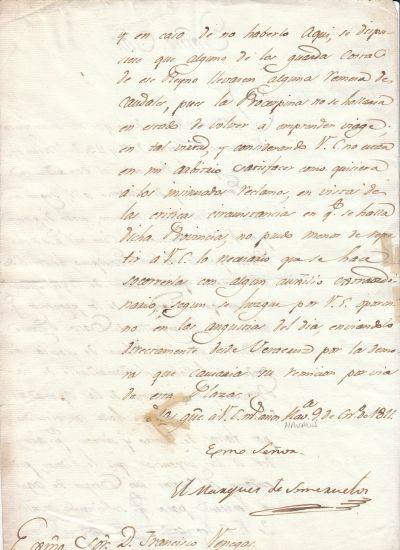 y en caso de no haberlo Aqui, se dispu-
ciese que alguno de los guarda Costas
de ese Reyno llevasen algunas remesa de
caudales, pues la Proserpina no se hallaria
en estado de volver á emprender viage,
en tal virtud, y considerando V.E. no estar
en mi arbitrio satisfacer como quisiera
á los insinuados reclamos, en vista de
las criticas circunstancias en q.e se halla
dicha Provincia, no pudo menos de repe-
tir á V.E. lo necesario que se hace
socorrerla con algun auxilio extraordi-
nario, segun se juzgue por V.E. oportu-
no en las angustias del dia, enviandolo
directamente desde Veracruz por la demo-
ra que causaria su remision por via
de esta Plaza.
D.s gu.e á V.E. m.s años. Hav.a 9 de En.o de 1811.
HAVANA
Exmo Señor
El Marques de Someruelos
Exmo. Sor. D. Francisco Venegas.